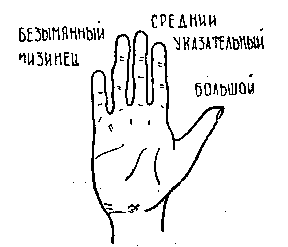 БЕЗЫМЯННЫЙ
МИЗИНЕЦ
СРЕДНИЙ
УКАЗАТЕЛЬНЫЙ
БОЛЬШОЙ